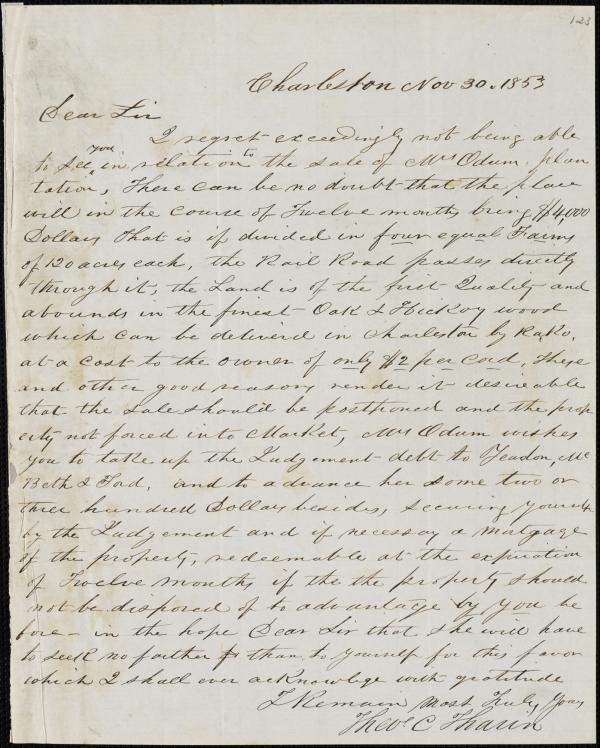 123
Charleston Nov 30. 1853
Dear Sir
I regret exceedingly not being able
to see you in relation to the sale of Mrs Odum. plan
tation, There can be no doubt that the place
will in the course of Twelve months bring $4000
Dollars That is if divided in four equal Farms
of 120 acres each, the Rail Road passes directly
through it, the Land is of the first Quality and
abounds in the finest Oak & Hickory wood
which can be delivered in Charleston by R. Ro.
at a cost to the owner of only $2 per cord, These
and other good reasons render it desireable
that the sale should be postponed and the prop
erty not forced into Market, Mrs Odum wishes
you to take up the Judgement debt to Yeadon, Mc
Beth & Ford, and to advance her some two or
three hundred Dollars besides, securing yourself
by the Judgement and if necessary a mortgage
of the property, redeemable at the expiration
of Twelve months if the the property should
not be disposed of to advantage by you be
fore - in the hope Dear Sir that she will have
to seek no farther than to yourself for this favor
which I shall ever acknowlege with gratitude
I Remain most Truly Yours
Theos. C Tharin